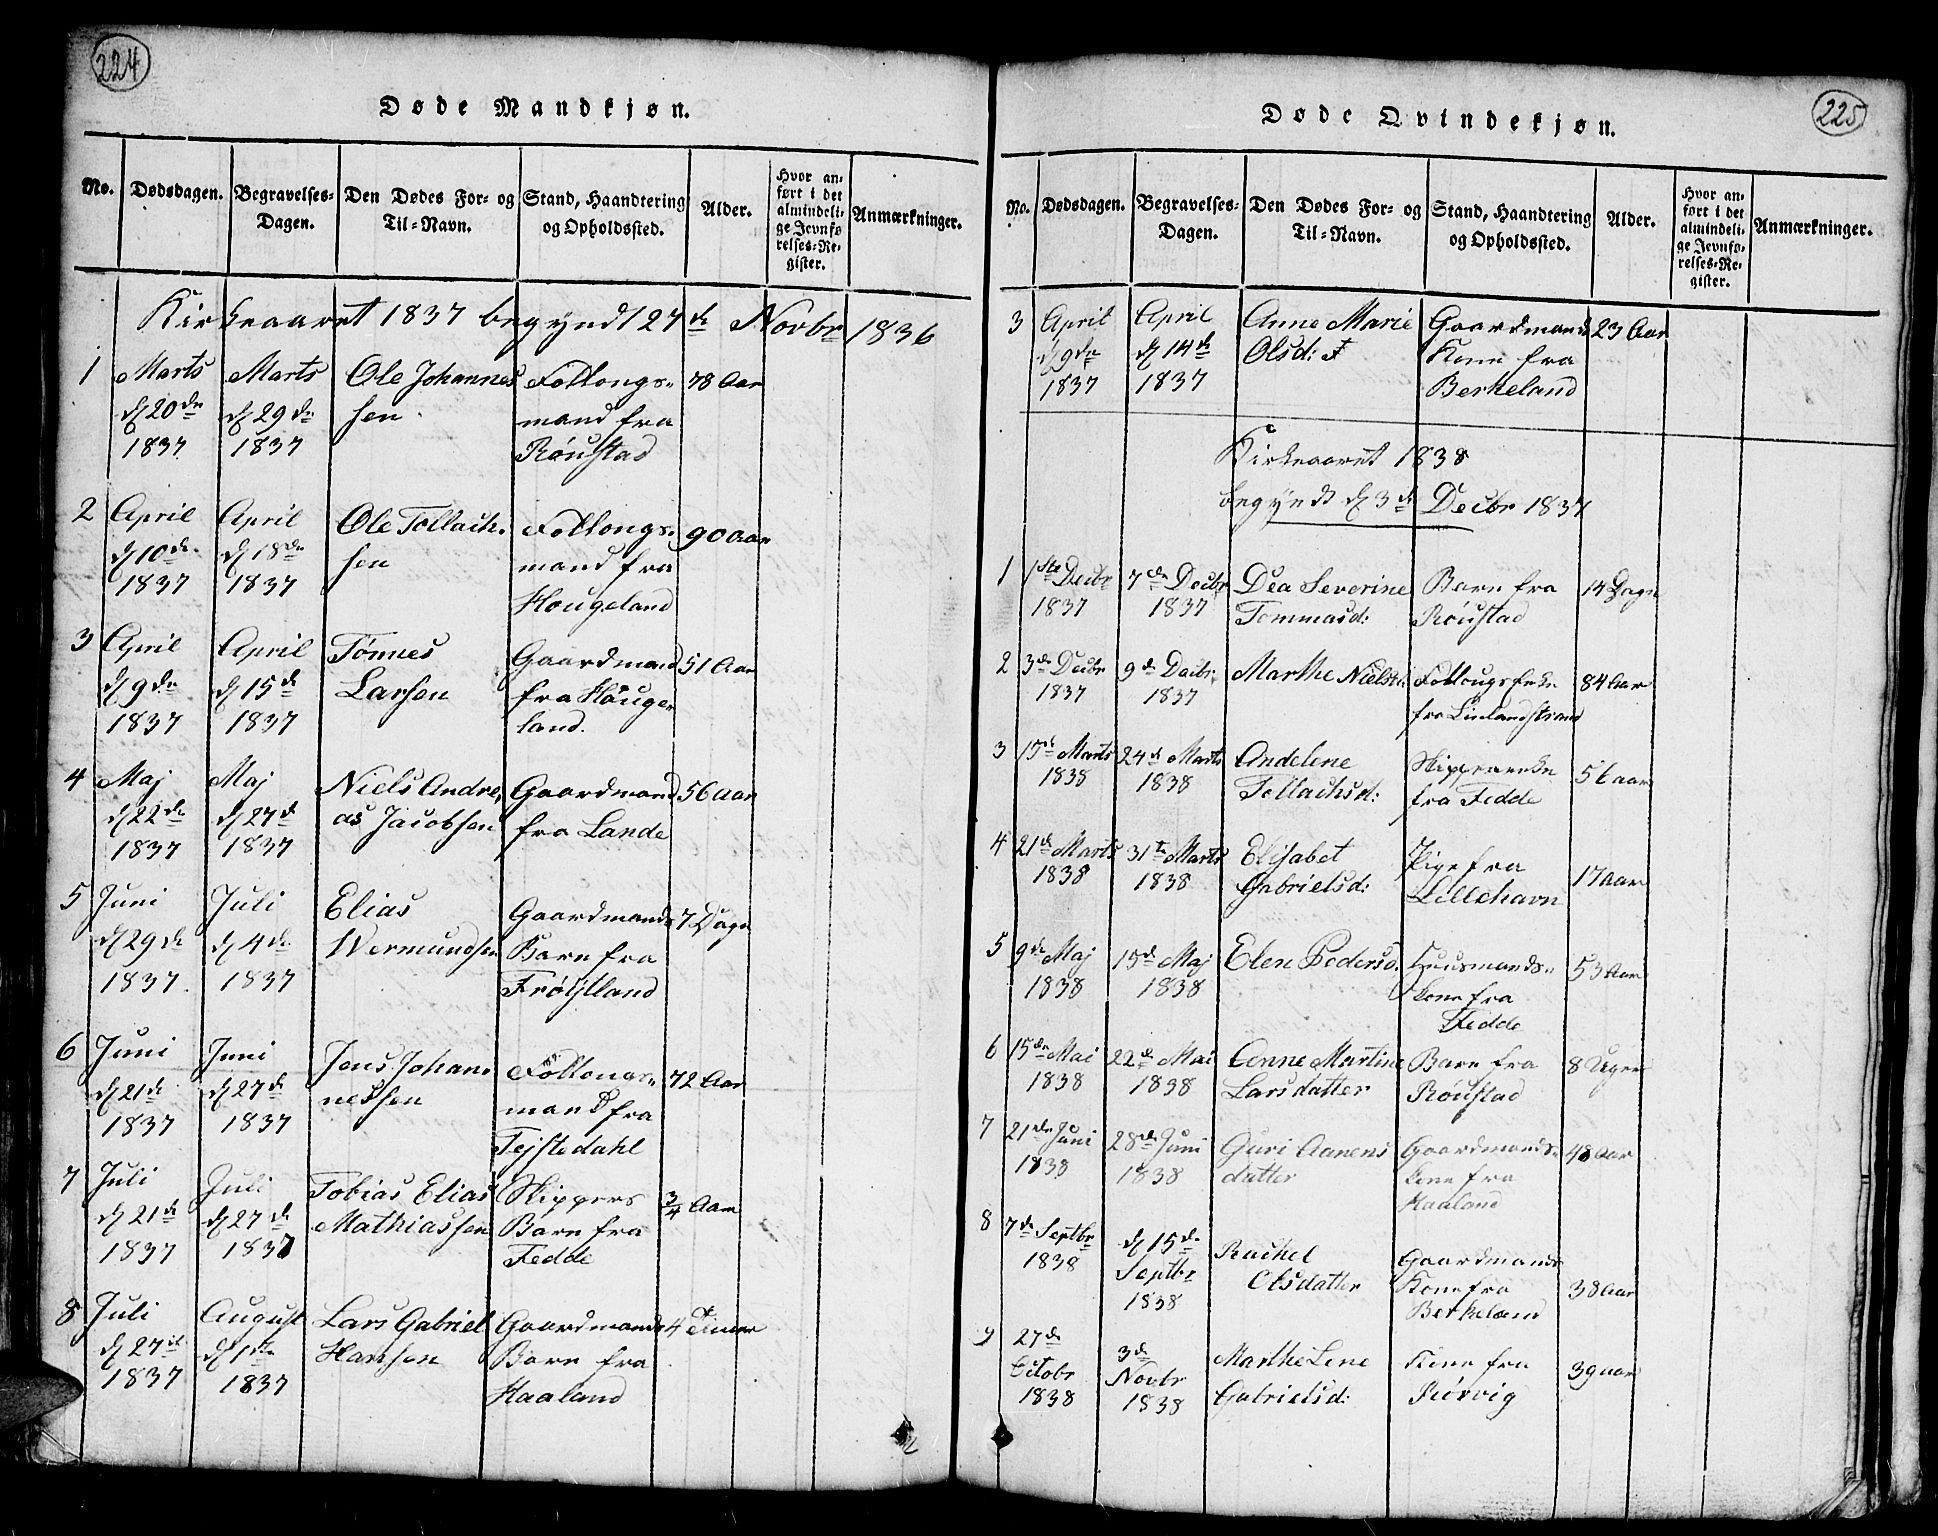 224
Døde Mandkjøn.
No. Dødsdagen. Begravelses-Dagen. Den Dødes For- og Til-Navn. Stand, Haandtering og Opholdssted. Alder. Hvor anført i det almindelige Jevnførelses-Register. Anmærkninger.
Kirkeaaret 1837 begyndt 27de Novbr 1836
1 Marts Marts Ole Johannes Follougs- 78 Aar
d 20de d 29de sen mand fra
1837 1837 Røiistad
2 April April Ole Tollach- Follougs- 90 Aar
d 10de d 18de sen mand fra
1837 1837 Hougeland
3 April April Tønnes Gaardmand 51 Aar
d 9de d 15de Larsen fra Houge-
1837 1837 land.
4 Maj Maj Niels Andre- Gaardmand 56 Aar
d 22de d 27de as Jacobsen fra Lande
1837 1837
5 Juni Juli Elias Gaardmands 7 Dage
d 29de d 4de Wermundsen Barn fra
1837 1837 Frøiјlland
6 Juni Juni Jens Johan- Follougs- 72 Aar
d 21de d 27de nessen mand fra
1837 1837 Tejstedahl
7 Juli Juli Tobias Elias Skippers 3/4 Aar
d 21de d 27de Mathiassen Barn fra
1837 1837 Fedde
8 Juli August Lars Gabriel Gaardmands 4 Timer
d 27de d 1ste Hansen Barn fra
1837 1837 Haaland
225
Døde Qvindekjøn.
No. Dødsdagen. Begravelses-Dagen. Den Dødes For- og Til-Navn. Stand, Haandtering og Opholdssted. Alder. Hvor anført i det almindelige Jevnførelses-Register. Anmærkninger.
3 April April Anne Marie Gaardmands 23 Aar
d 9de d 14de Olsd: Kone fra
1837 1837 Berkeland
Kirkeaaret 1838
begyndt d 3de Decbr 1837
1 1ste Decbr 7de Decbr Dea Severine Barn fra 14 Dage
1837 1837 Tommasd: Røiistad
2 3de Decbr 9de Decbr Marthe Nielsd: Follougs Enke 84 Aar
1837 1837 fra Linlandstrand
3 15de Marts 24de Marts Andelene Skipperenke 56 aar
1838 1838 Tollachsd: fra Fedde
4 21de Marts 31te Marts Elisabet Pige fra 17 Aar
1838 1838 Gabrielsd: Lillehavn
5 9de Maj 15de Maj Elen Pedersd. Huusmands- 53 Aar
1838 1838 kone fra
Fedde
6 15de Mai 22de Mai Anne Martine Barn fra 8 Uger
1838 1838 Larsdatter Røiistad
7 21de Juni 28de Juni Guri Aanens Gaardmands- 48 Aar
1838 1838 datter kone fra
Haaland
8 7de Septbr d 15de Rachel Gaardmands 38 Aar
1838 Septbr Olsdatter Kone fra
1838 Berkeland
9 27de 3de Marthe Lene Kone fra 39 aar
Octobr Novbr Gabrielsd:
1838 1838